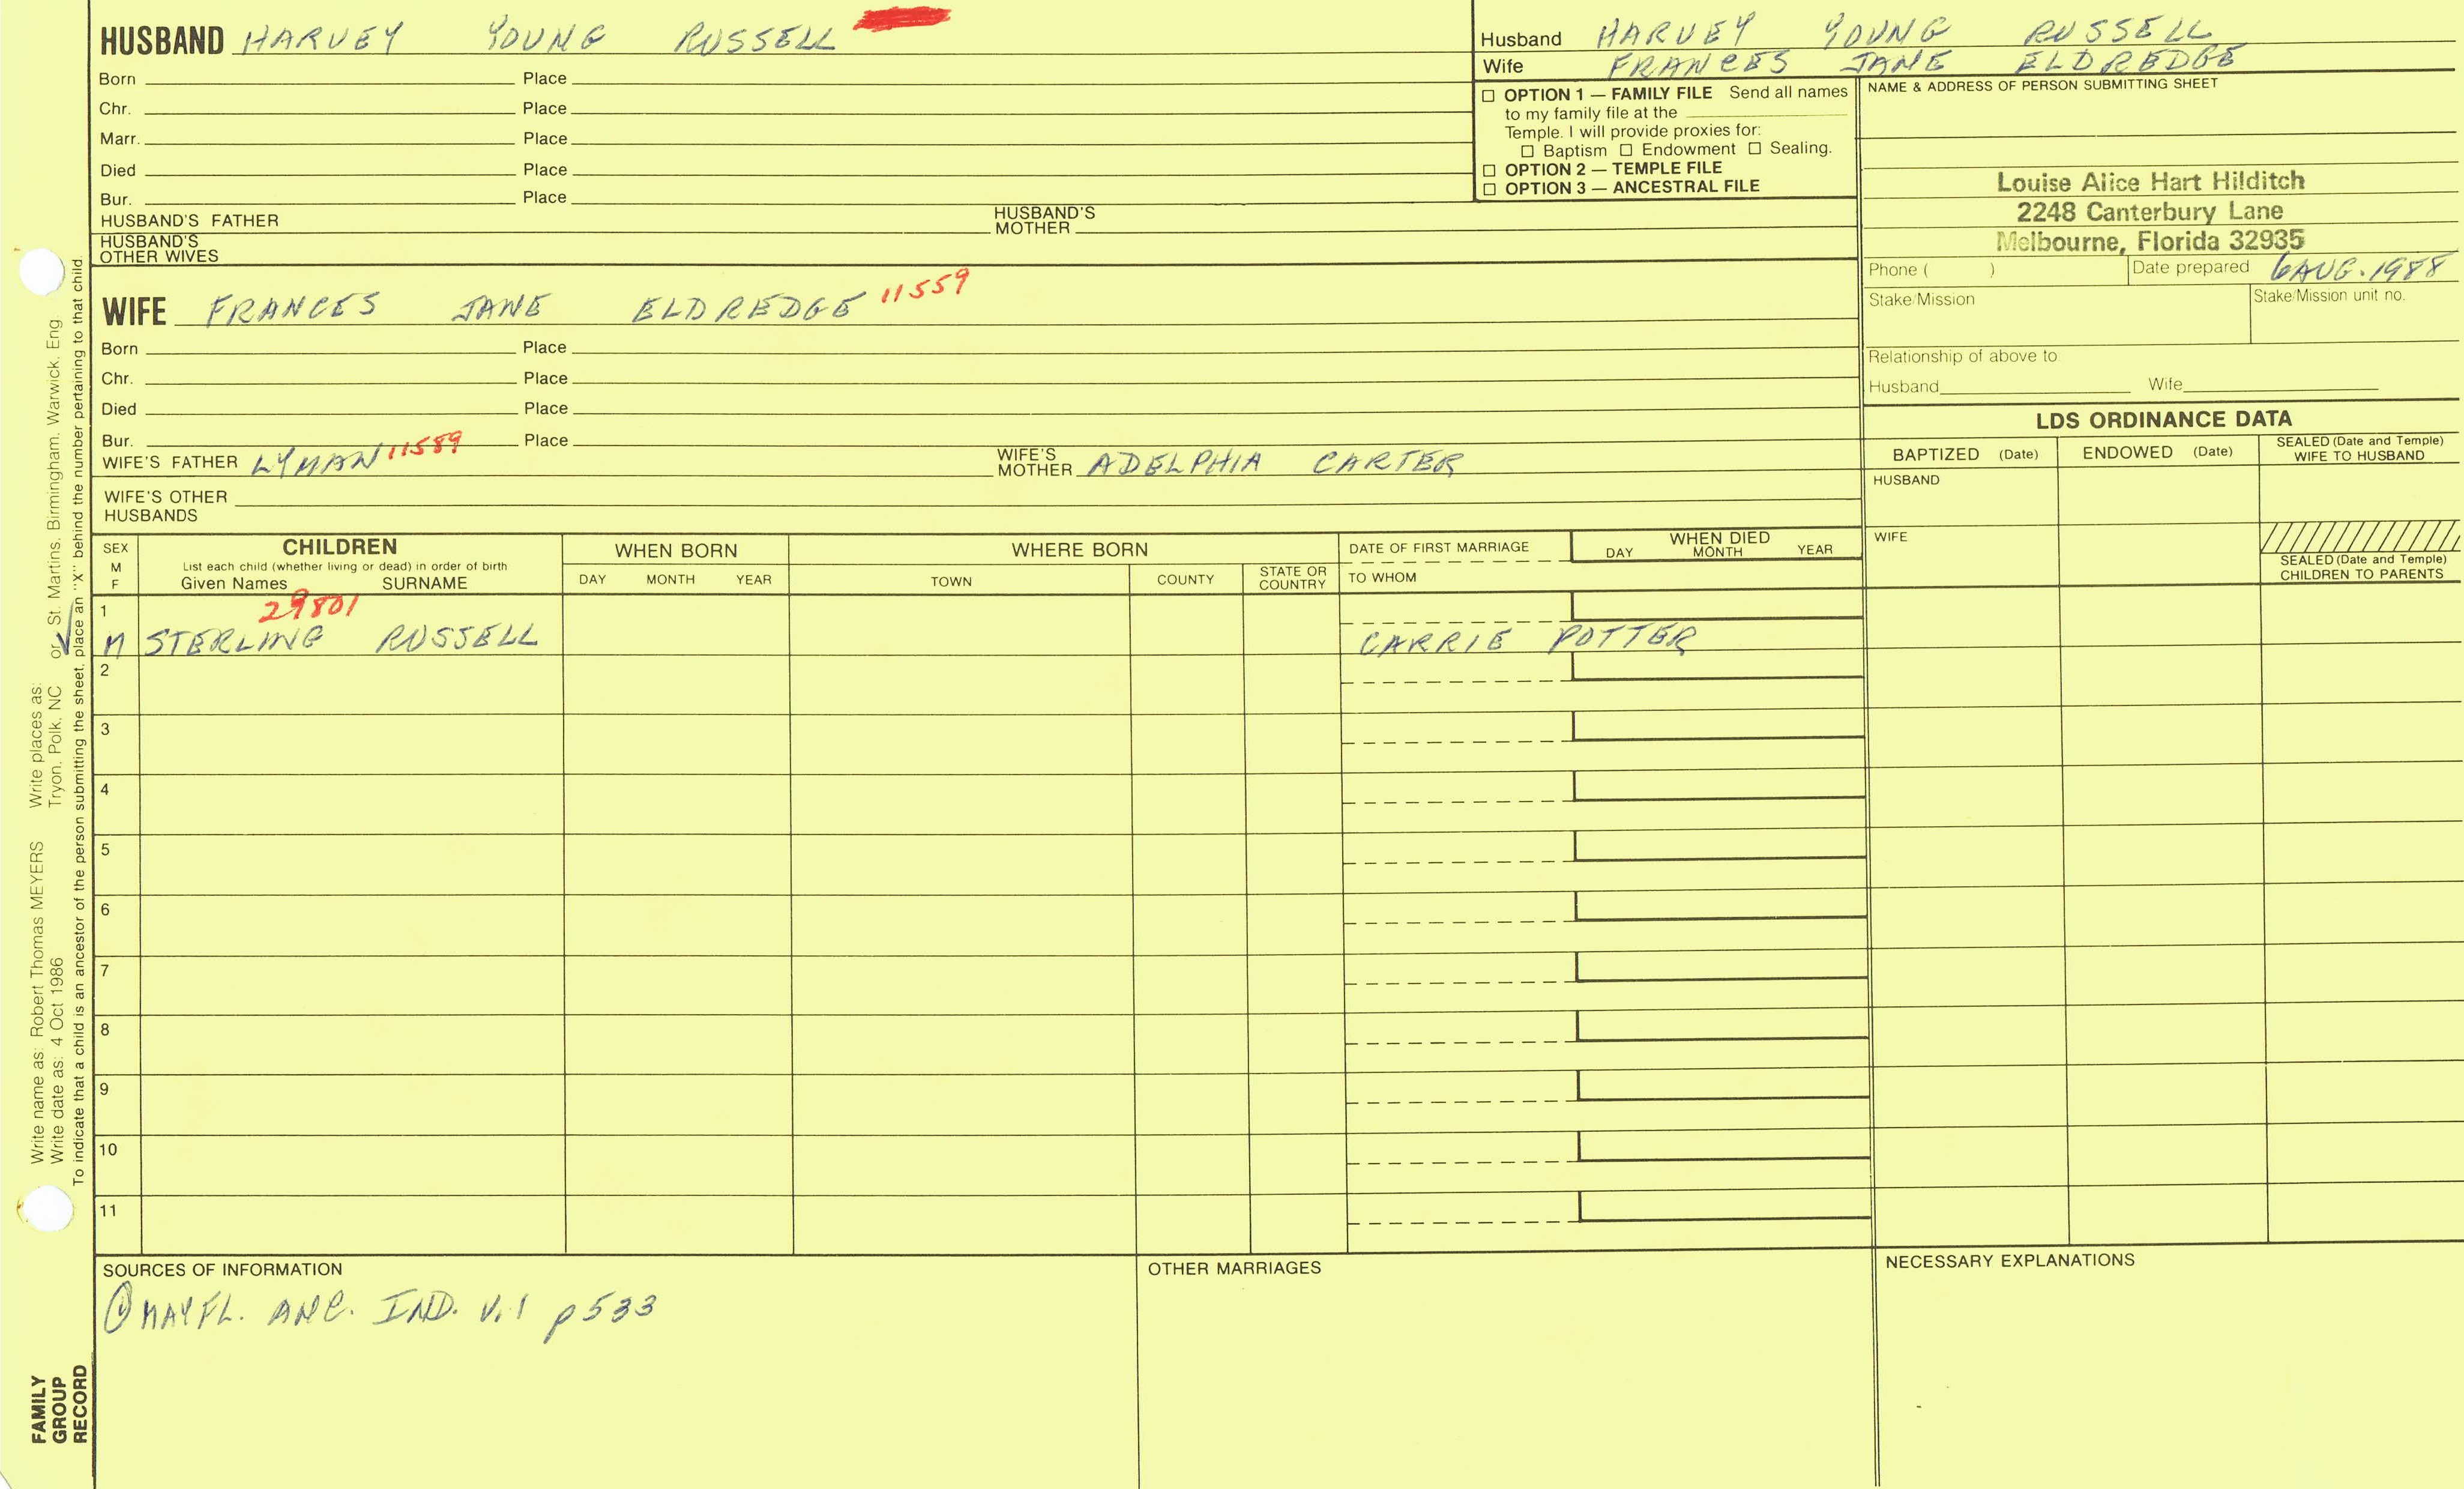 HUSBAND HARVEY YOUNG RUSSELL
Born Place
Chr. Place
Marr. Place
Died Place
Bur. Place
HUSBAND'S FATHER HUSBAND'S MOTHER
HUSBAND'S OTHER WIVES
Husband HARVEY YOUNG RUSSELL
Wife FRANCES JANE ELDREDGE
☐ OPTION 1 — FAMILY FILE Send all names
to my family file at the
Temple. I will provide proxies for:
☐ Baptism ☐ Endowment ☐ Sealing.
☐ OPTION 2 — TEMPLE FILE
☐ OPTION 3 — ANCESTRAL FILE
NAME & ADDRESS OF PERSON SUBMITTING SHEET
Louise Alice Hart Hilditch
2248 Canterbury Lane
Melbourne, Florida 32935
Phone ( ) Date prepared 6 AUG. 1988
Stake/Mission Stake/Mission unit no.
Relationship of above to
Husband Wife
WIFE FRANCES JANE ELDREDGE 11559
Born Place
Chr. Place
Died Place
Bur. Place
WIFE'S FATHER LYMAN 11589 WIFE'S MOTHER ADELPHIA CARTER
WIFE'S OTHER
HUSBANDS
LDS ORDINANCE DATA
BAPTIZED (Date) ENDOWED (Date) SEALED (Date and Temple) WIFE TO HUSBAND
HUSBAND
WIFE
SEALED (Date and Temple)
CHILDREN TO PARENTS
SEX
M
F
CHILDREN
List each child (whether living or dead) in order of birth
Given Names SURNAME
WHEN BORN
DAY MONTH YEAR
WHERE BORN
TOWN COUNTY STATE OR COUNTRY
DATE OF FIRST MARRIAGE
TO WHOM
WHEN DIED
DAY MONTH YEAR
1 29801
M STERLING RUSSELL CARRIE POTTER
2
3
4
5
6
7
8
9
10
11
SOURCES OF INFORMATION
① MAYFL. ANC. IND. V.1 p533
OTHER MARRIAGES
NECESSARY EXPLANATIONS
Write name as: Robert Thomas MEYERS Write places as:
Write date as: 4 Oct 1986 Tryon, Polk, NC or St. Martins, Birmingham, Warwick, Eng.
To indicate that a child is an ancestor of the person submitting the sheet, place an "X" behind the number pertaining to that child.
FAMILY
GROUP
RECORD